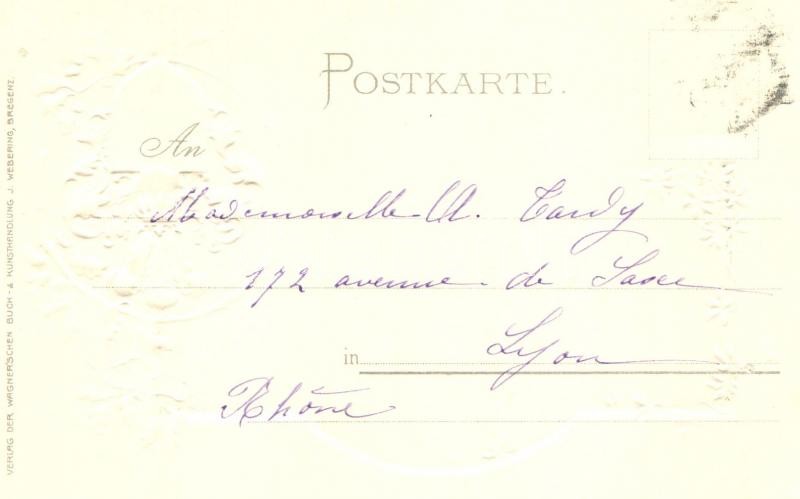 POSTKARTE.
An
Mademoiselle A. Tardy
172 avenue de Saxe
in Lyon
Rhône
VERLAG DER WAGNER'SCHEN BUCH- & KUNSTHANDLUNG J. WEBERING, BREGENZ.